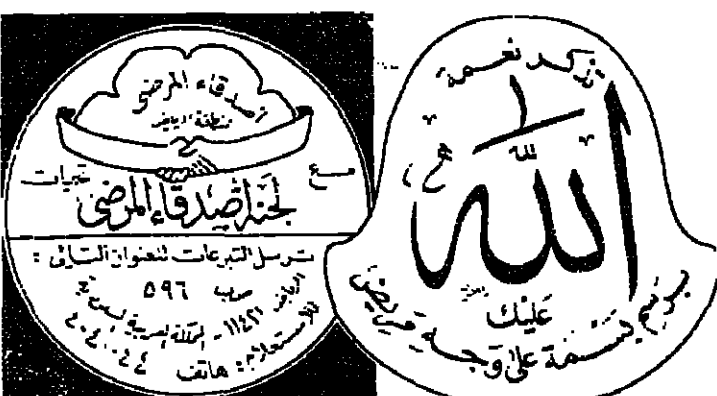 أصدقاء المرضى
منطقة الرياض
مع تحيات
لجنة أصدقاء المرضى
ترسل التبرعات للعنوان التالي :
ص.ب ٥٩٦
الرياض ١١٤٢١ - المملكة العربية السعودية
للاستعلام : هاتف ٤٠٤٠٠٤٤
تذكر نعمة
الله
عليك
برسم بسمة على وجه مريض